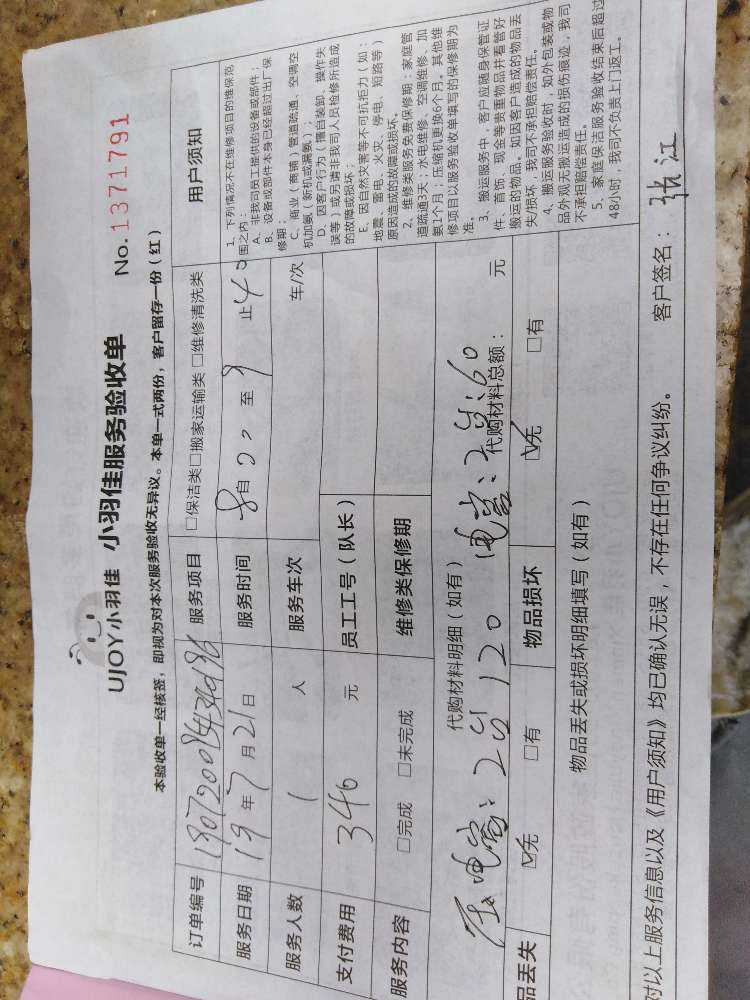 UJOY小羽佳 小羽佳服务验收单 No.1371791
本验收单一经核签，即视为对本次服务验收无异议。本单一式两份，客户留存一份（红）
订单编号
服务项目 □保洁类□搬家运输类 □维修清洗类
服务日期 19年7月21日
服务时间 8自00至9止40
服务人数 1人
服务车次 车/次
支付费用 346元
员工工号（队长）
服务内容 □完成 □未完成
维修类保修期
代购材料明细（如有）
电容：2组120 电容：2组：60
代购材料总额： 元
品丢失 ☑无 □有
物品损坏 ☑无 □有
物品丢失或损坏明细填写（如有）
用户须知
1、下列情况不在维修项目的维保范
围之内：
A、非我司员工提供的设备或部件；
B、设备或部件本身已经超过出厂保
修期；
C、商业（商铺）管道疏通、空调空
机加氨（新机或漏氨）；
D、因客户行为（擅自装卸、操作失
误等）或另请非我司人员检修所造成
的故障或损坏；
E、因自然灾害等不可抗拒力（如：
地震、雷电、火灾、停电、短路等）
原因造成的故障或损坏。
2、维修类服务免费保修期：家庭管
道疏通3天；水电维修、空调维修、加
氨1个月；压缩机更换6个月。其他维
修项目以服务验收单填写的保修期为
准。
3、搬运服务中，客户应随身保管证
件、首饰、现金等贵重物品并看管好
搬运的物品。如因客户造成的物品丢
失/损坏，我司不承担赔偿责任。
4、搬运服务验收时，如外包装或物
品外观无搬运造成的损伤痕迹，我司
不承担赔偿责任。
5、家庭保洁服务验收结束后超过
48小时，我司不负责上门返工。
对以上服务信息以及《用户须知》均已确认无误，不存在任何争议纠纷。 客户签名：张江